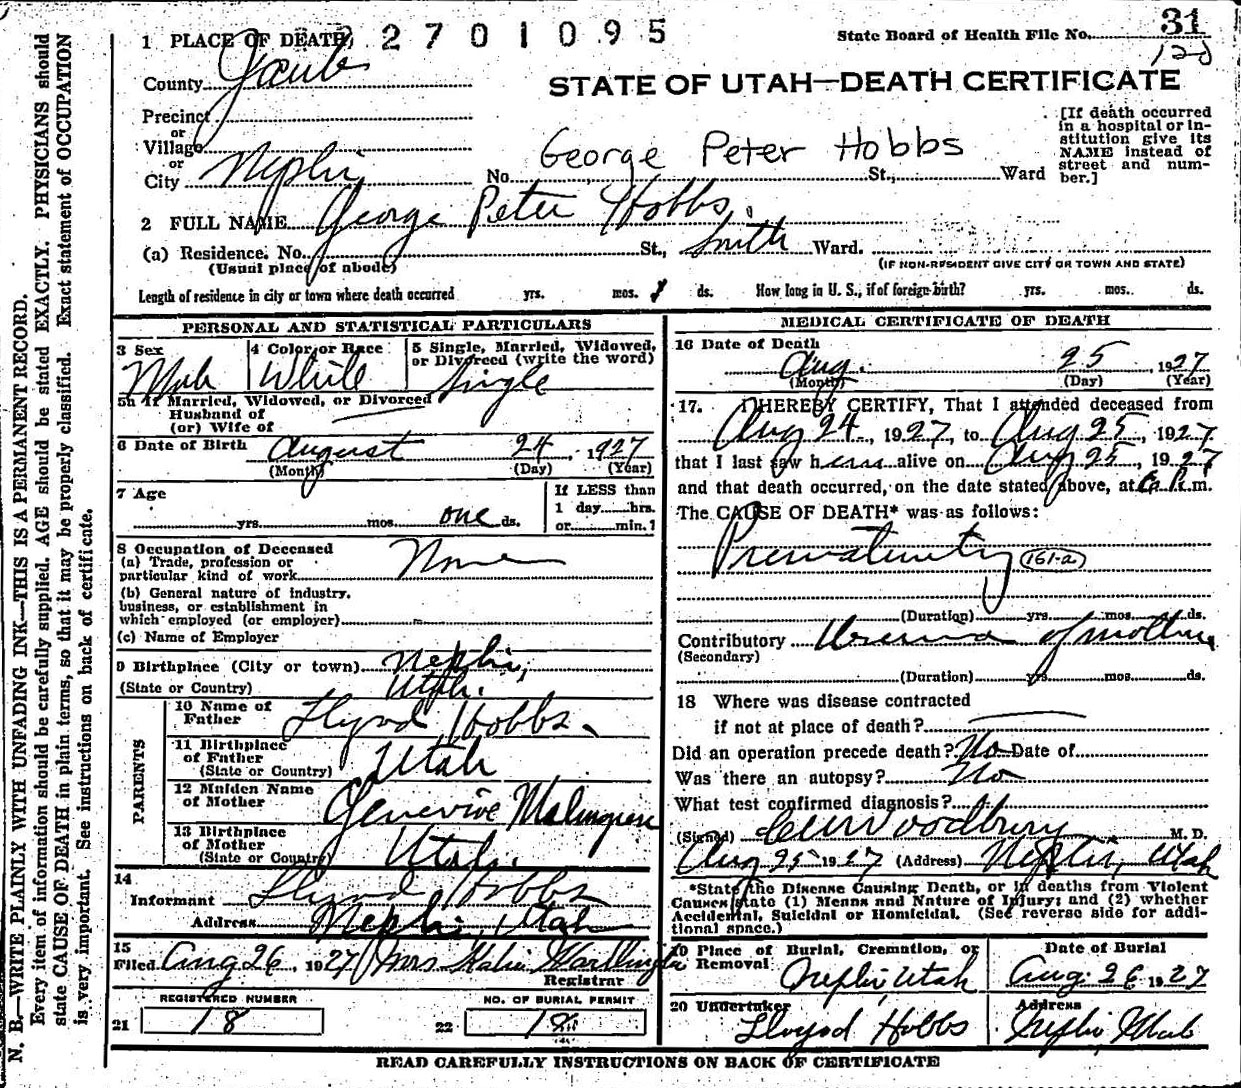 1 PLACE OF DEATH 2 7 0 1 0 9 5
State Board of Health File No. 31
County Juab
STATE OF UTAH—DEATH CERTIFICATE
Precinct
or
Village
or
City Nephi No. St., Ward
George Peter Hobbs
[If death occurred in a hospital or institution give its NAME instead of street and number.]
2 FULL NAME George Peter Hobbs.
(a) Residence. No. St., Smith Ward.
(Usual place of abode) (IF NON-RESIDENT GIVE CITY OR TOWN AND STATE)
Length of residence in city or town where death occurred yrs. mos. ds. How long in U. S., if of foreign birth? yrs. mos. ds.
PERSONAL AND STATISTICAL PARTICULARS
3 Sex 4 Color or Race 5 Single, Married, Widowed,
or Divorced (write the word)
Male White Single
5a If Married, Widowed, or Divorced
Husband of
(or) Wife of
6 Date of Birth August 24, 1927
(Month) (Day) (Year)
7 Age If LESS than
yrs. mos. one ds. 1 day hrs.
or min.
8 Occupation of Deceased
(a) Trade, profession or
particular kind of work None
(b) General nature of industry,
business, or establishment in
which employed (or employer)
(c) Name of Employer
9 Birthplace (City or town) Nephi,
(State or Country) Utah.
PARENTS
10 Name of
Father Lloyd Hobbs.
11 Birthplace
of Father
(State or Country) Utah
12 Maiden Name
of Mother Genevive Malmgren
13 Birthplace
of Mother
(State or Country) Utah.
14
Informant Lloyd Hobbs
Address Nephi, Utah
15
Filed Aug 26, 1927 Mrs
Registrar
REGISTERED NUMBER NO. OF BURIAL PERMIT
21 18 22 18
MEDICAL CERTIFICATE OF DEATH
16 Date of Death
Aug. 25, 1927
(Month) (Day) (Year)
17. I HEREBY CERTIFY, That I attended deceased from
Aug 24, 1927, to Aug 25, 1927
that I last saw h alive on Aug 25, 1927
and that death occurred, on the date stated above, at m.
The CAUSE OF DEATH* was as follows:
Prematurity 161-a
(Duration) yrs. mos. ds.
Contributory Uremia of mother
(Secondary)
(Duration) yrs. mos. ds.
18 Where was disease contracted
if not at place of death?
Did an operation precede death? No Date of
Was there an autopsy? No
What test confirmed diagnosis?
(Signed) Woodbury M. D.
Aug 25 1927 (Address) Nephi, Utah
*State the Disease Causing Death, or in deaths from Violent
Causes state (1) Means and Nature of Injury; and (2) whether
Accidental, Suicidal or Homicidal. (See reverse side for addi-
tional space.)
19 Place of Burial, Cremation, or Date of Burial
Removal Nephi Utah Aug. 26 1927
20 Undertaker Address
Lloyd Hobbs Nephi, Utah
READ CAREFULLY INSTRUCTIONS ON BACK OF CERTIFICATE
N. B.—WRITE PLAINLY WITH UNFADING INK—THIS IS A PERMANENT RECORD.
Every item of information should be carefully supplied. AGE should be stated EXACTLY. PHYSICIANS should
state CAUSE OF DEATH in plain terms, so that it may be properly classified. Exact statement of OCCUPATION
is very important. See instructions on back of certificate.